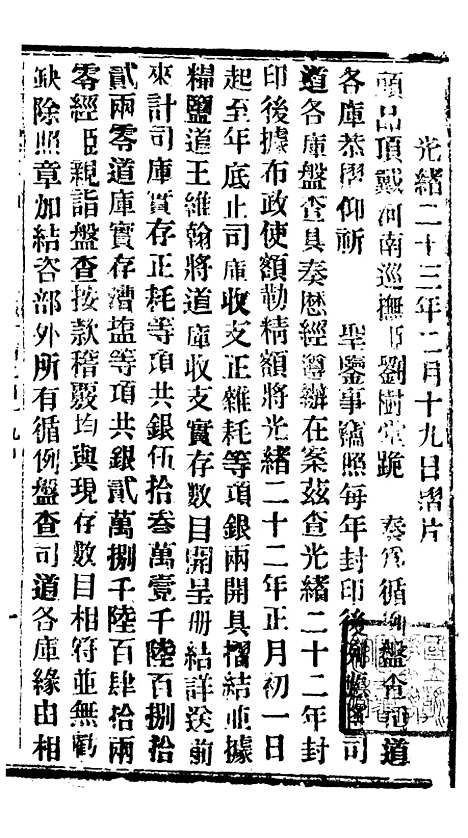 光緒二十三年二月十九日摺片
頭品頂戴河南巡撫臣劉樹堂跪　奏爲循例盤查司道
各庫恭摺仰祈　聖鑒事竊照每年封印後例應將司
道各庫盤查具奏歷經遵辦在案茲查光緒二十二年封
印後據布政使額勒精額將光緒二十二年正月初一日
起至年底止司庫收支正雜耗等項銀兩開具摺結並據
糧鹽道王維翰將道庫收支實存數目開呈册結詳送前
來計司庫實存正耗等項共銀伍拾叁萬壹千陸百捌拾
貳兩零道庫實存漕塩等項共銀貳萬捌千陸百肆拾兩
零經臣親詣盤查按款稽覈均與現存數目相符並無虧
缺除照章加結咨部外所有循例盤查司道各庫緣由相